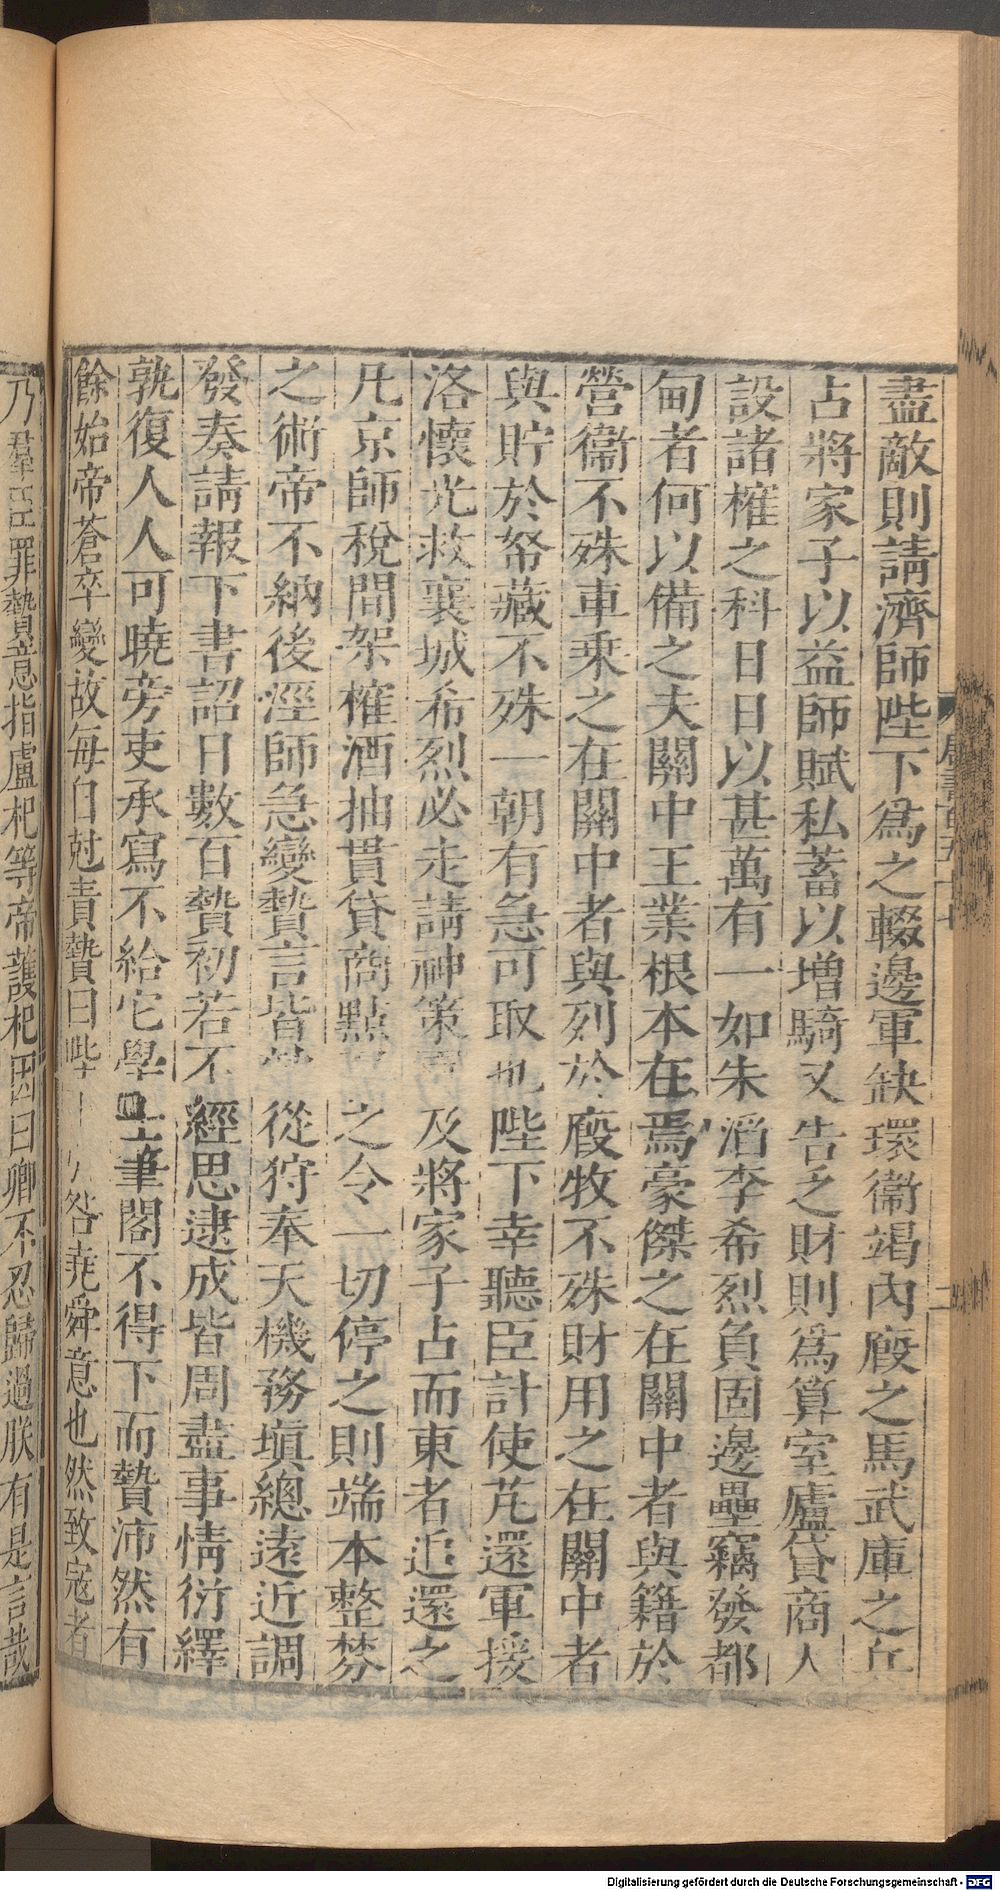 盡敵則請濟師陛下爲之輟邊軍缺環衞竭內廄之馬武庫之兵
占將家子以益師賦私蓄以增騎又告乏財則爲算室廬貸商人
設諸榷之科日日以甚萬有一如朱滔李希烈負固邊壘竊發都
甸者何以備之夫關中王業根本在焉豪傑之在關中者與籍於
營衞不殊車乗之在關中者與列於廄牧不殊財用之在關中者
與貯於帑藏不殊一朝有急可取也陛下幸聽臣計使芃還軍援
洛懷光救襄城希烈必走請神策及將家子占而東者追還之
凡京師稅間架榷酒抽貫貸商點之令一切停之則端本整棼
之術帝不納後涇師急變贄言皆從狩奉天機務塡總遠近調
發奏請報下書詔日數百贄初若不經思逮成皆周盡事情衍繹
孰復人人可曉旁吏承寫不給它學士筆閣不得下而贄沛然有
餘始帝蒼卒變故每自尅責贄曰陛咎堯舜意也然致寇者
乃羣臣罪贄意指盧杞等帝護杞因曰卿不忍歸過朕有是言哉
唐書百五十七
二
Digitalisierung gefördert durch die Deutsche Forschungsgemeinschaft - DFG